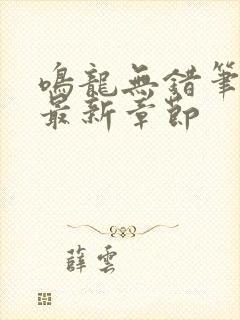 鳴龍無錯筆
最新章節
薛雲